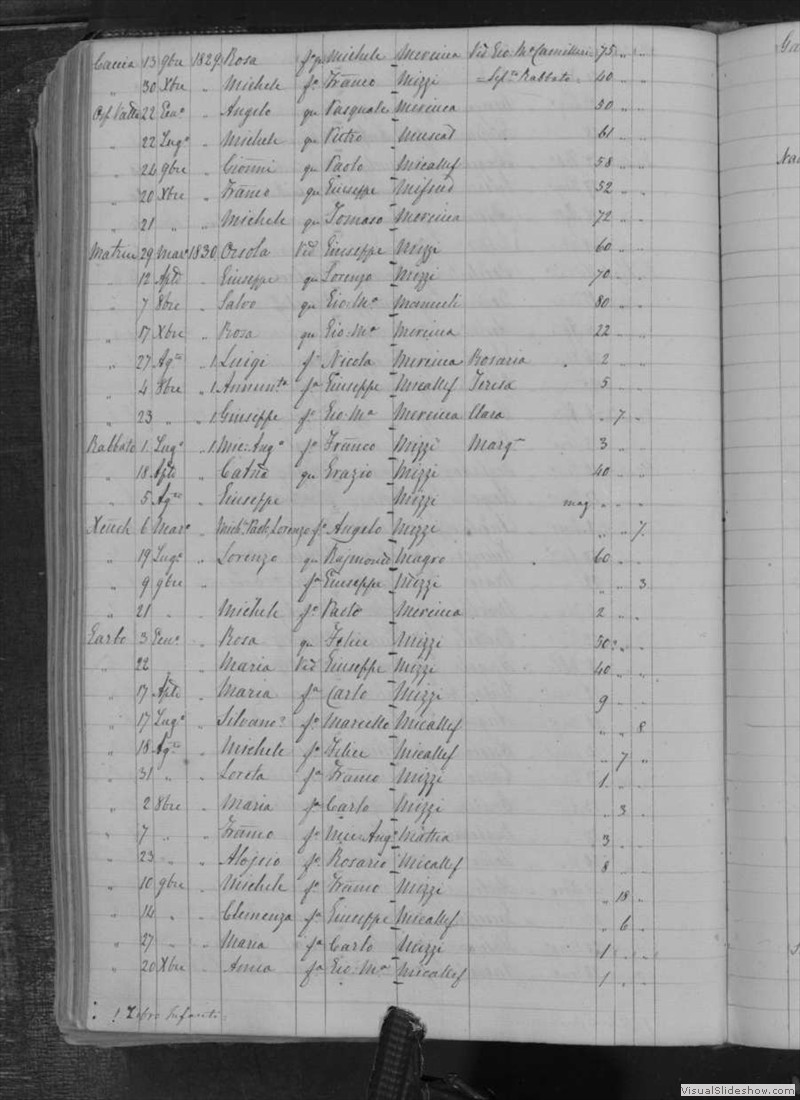 Caccia 13 9bre 1829 Rosa fa qu Michele Mercieca Vid Gio Ma Camilleri 75 " "
" 30 Xbre " Michele fo Franco Mizzi = Sepo Rabbato 40 " "
Osp Vallta 22 Geno " Angelo qu Pasquale Mercieca 50 " "
" 22 Lugo " Michele qu Pietro Muscat 61 " "
" 24 9bre " Gionni qu Paolo Micallef 58 " "
" 20 Xbre " Franco qu Giuseppe Mifsud 52 " "
" 21 " " Michele qu Tomaso Mercieca 72 " "
Matrice 29 Marzo 1830 Orsola Vid Giuseppe Mizzi 60 " "
" 12 Aple " Giuseppe qu Lorenzo Mizzi 70 " "
" 7 8bre " Salvo qu Gio Ma 80 " "
" 17 Xbre " Rosa qu Gio Ma Mercieca 22 " "
" 27 Ago " ! Luigi fo Nicola Mercieca Rosaria 2 " "
" 4 8bre " ! Annunta fa Giuseppe Micallef Teresa 5 " "
" 23 " " ! Giuseppe fo Gio Ma Mercieca Clara " 7 "
Rabbato 1 Lugo " ! Mic: Ango fo Franco Mizzi Margta 3 " "
" 18 Aple " Catna qu Grazio Mizzi 40 " "
" 5 Ago " Giuseppe Mizzi mag " " "
6 Marzo " Mich: Paolo Lorenzo fo Angelo Mizzi " " 7
" 19 Lugo " Lorenzo qu Rajmondo Magro 60 " "
" 9 9bre " fa Giuseppe Mizzi " " 3
" 21 " " Michele fo Paolo Mercieca 2 " "
Garbo 3 Geno " Rosa qu Felice Mizzi 50 " "
" 22 " Maria Vid Giuseppe Mizzi 40 " "
" 17 Aple " Maria fa Carlo Mizzi 9 " "
" 17 Lugo " Silvano fo Marcello Micallef " " 8
" 18 Ago " Michele fo Felice Micallef " 7 "
" 31 " " Loreta fa Franco Mizzi 1 " "
" 2 8bre " Maria fa Carlo Mizzi " 3 "
" 7 " " Franco fo Mic: Ango Mattia 3 " "
" 23 " " Alojsio fo Rosario Micallef 8 " "
" 10 9bre " Michele fo Franco Mizzi " 18 "
" 14 " " Clemenza fa Giuseppe Micallef " 6 "
" 27 " " Maria fa Carlo Mizzi 1 " "
" 20 Xbre " Anna fa Gio: Ma Micallef 1 " "
! Infanti
VisualSlideshow.com